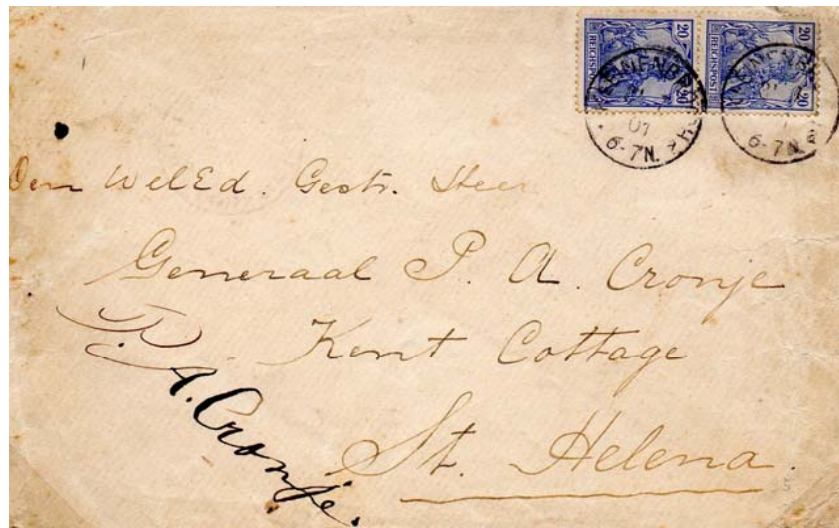 20 REICHSPOST 20
20 REICHSPOST 20
01
6-7N.
6-7N.
Den WelEd. Gestr. Heer
Generaal P. A. Cronje
Kent Cottage
St. Helena.
P. A. Cronje.